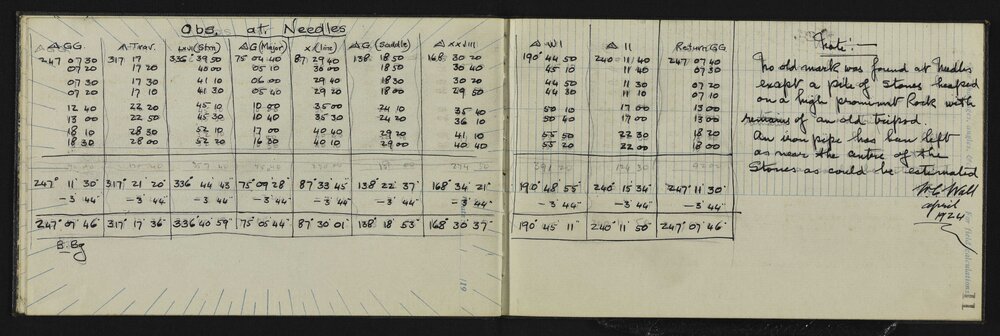 Obs. at. Needles
△ GG. △ Trav. lxvi (Strn) △ G (Major) xi (Line) △ G. (Saddle) △ xxviii
247 07 30 317 17 336° 39 50 75 04 40 87 29 40 138 18 50 168 30 20
07 20 17 20 40 00 05 10 30 00 18 50 30 40
07 30 17 30 41 10 06 00 29 40 18 30 30 20
07 20 17 10 41 30 05 40 29 20 18 00 29 50
12 40 22 20 45 10 10 00 35 00 24 10 35 40
13 00 22 50 45 30 10 40 35 30 24 20 36 10
18 10 28 30 52 10 17 00 40 40 29 20 41 10
18 30 28 00 52 20 16 30 40 10 29 00 40 40
247° 11' 30" 317° 21' 20" 336° 44' 43" 75° 09' 28" 87° 33' 45" 138° 22' 37" 168° 34' 21"
-3' 44" -3' 44" -3' 44" -3' 44" -3' 44" -3' 44" -3' 44"
247° 07' 46" 317° 17' 36" 336 40 59" 75 05 44" 87° 30' 01" 138° 18' 53" 168° 30' 37"
B. Bg
119
△ WI △ II Return GG
190° 44 50 240° 11 40 247° 07 40
45 10 11 40 07 30
44 30 11 30 07 20
44 30 11 10 07 10
50 10 17 00 13 00
50 40 17 00 13 00
55 50 22 30 18 20
55 20 22 00 18 00
190° 48' 55" 240° 15' 34" 247° 11' 30"
-3' 44" -3' 44" -3' 44"
190° 45' 11" 240° 11' 50" 247° 07' 46"
Note:—
No old mark was found at Needles
except a pile of Stones heaped
on a high prominent Rock with
remains of an old tripod.
An iron pipe has been left
as near the centre of the
Stones as could be estimated
W.C. Wall
April
1924
For field calculations